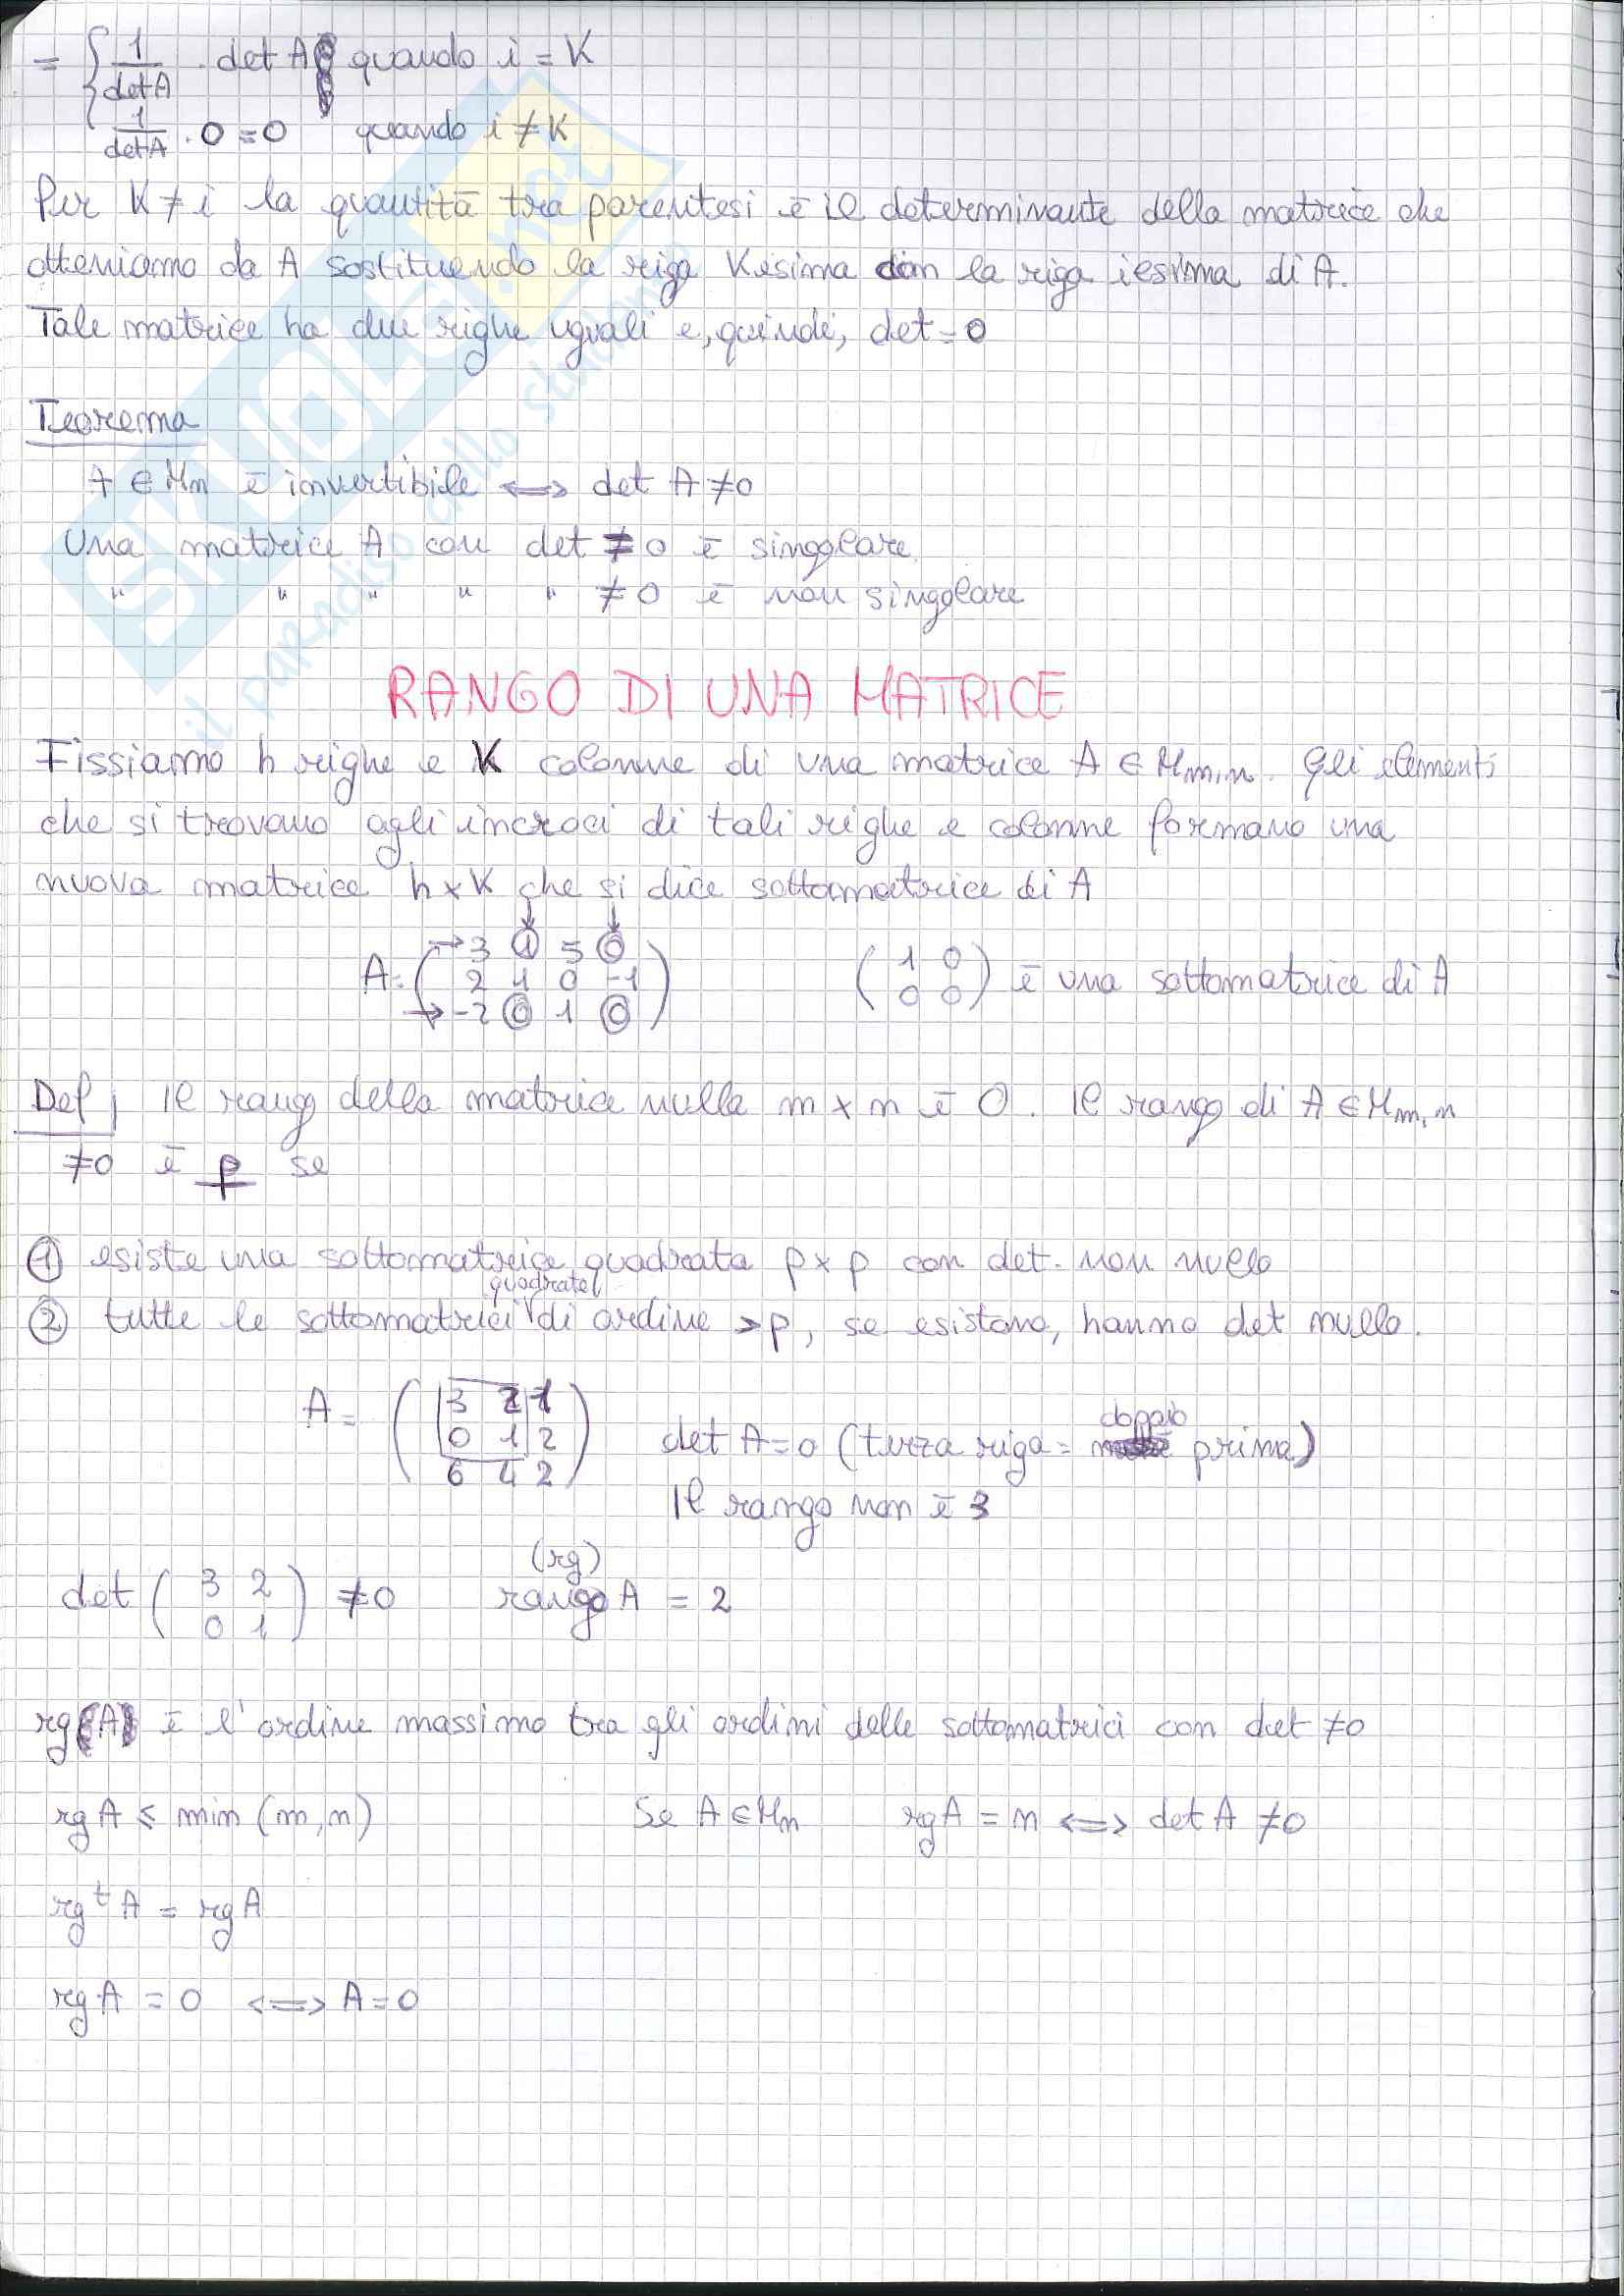 = { 1/detA · det A quando i = K
1/detA · 0 = 0 quando i ≠ K
Per K ≠ i la quantità tra parentesi è il determinante della matrice che
otteniamo da A sostituendo la riga Kesima con la riga iesima di A.
Tale matrice ha due righe uguali e, quindi, det = 0
Teorema
A ∈ Mn è invertibile ⟺ det A ≠ 0
Una matrice A con det = 0 è singolare
" " " " " ≠ 0 è non singolare
RANGO DI UNA MATRICE
Fissiamo h righe e K colonne di una matrice A ∈ Mm,n. Gli elementi
che si trovano agli incroci di tali righe e colonne formano una
nuova matrice h x K che si dice sottomatrice di A
→ 3 1 5 0
A = ( 2 1 0 -1 ) ( 1 0 / 0 0 ) è una sottomatrice di A
→ -2 0 1 0
Def Il rang della matrice nulla m x n è 0. Il rango di A ∈ Mm,n
≠0 è p se
① esiste una sottomatrice quadrata p x p con det. non nullo
② tutte le sottomatrici quadrate di ordine > p, se esistono, hanno det nullo.
A = ( 3 2 1
0 1 2
6 4 2 )
det A = 0 (terza riga = doppio prima)
Il rango non è 3
det ( 3 2 / 0 1 ) ≠ 0 rango (rg) A = 2
rg(A) è l'ordine massimo tra gli ordini delle sottomatrici con det ≠ 0
rg A ≤ min (m, n) Se A ∈ Mn rg A = n ⟺ det A ≠ 0
rg ᵗA = rg A
rg A = 0 ⟺ A = 0
SKUOLA.net
il paradiso dello studente